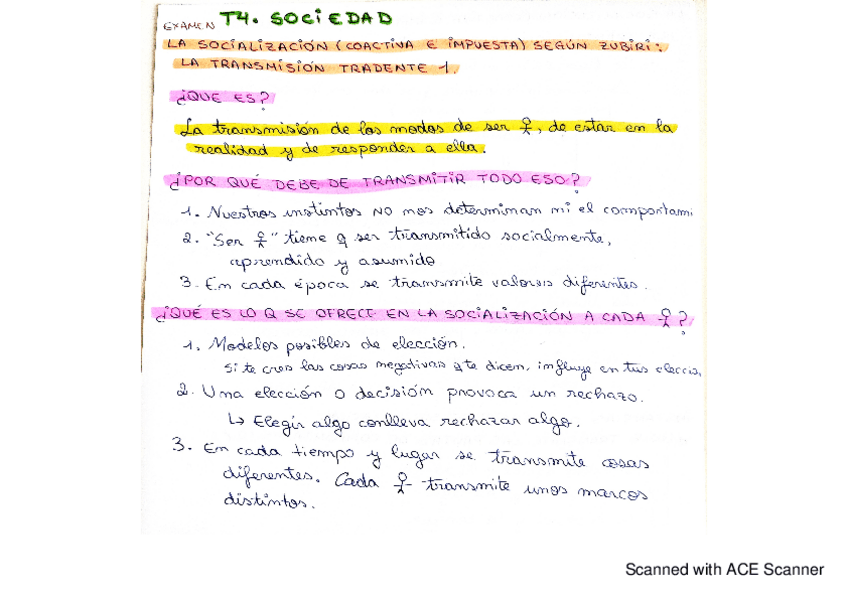 EXAMEN T4. SOCIEDAD
LA SOCIALIZACIÓN (COACTIVA E IMPUESTA) SEGÚN ZUBIRI:
LA TRANSMISIÓN TRADENTE 1.
¿QUE ES?
La transmisión de los modos de ser , de estar en la
realidad y de responder a ella.
¿POR QUÉ DEBE DE TRANSMITIR TODO ESO?
1. Nuestros instintos NO nos determinan ni el comportami
2. "Ser " tiene q ser transmitido socialmente,
aprendido y asumido
3. En cada época se transmite valores diferentes.
¿QUÉ ES LO Q SE OFRECE EN LA SOCIALIZACIÓN A CADA ?
1. Modelos posibles de elección.
Si te crees las cosas negativas q te dicen, influye en tus eleccio
2. Una elección o decisión provoca un rechazo.
↳ Elegir algo conlleva rechazar algo.
3. En cada tiempo y lugar se transmite cosas
diferentes. Cada transmite unos marcos
distintos.
Scanned with ACE Scanner